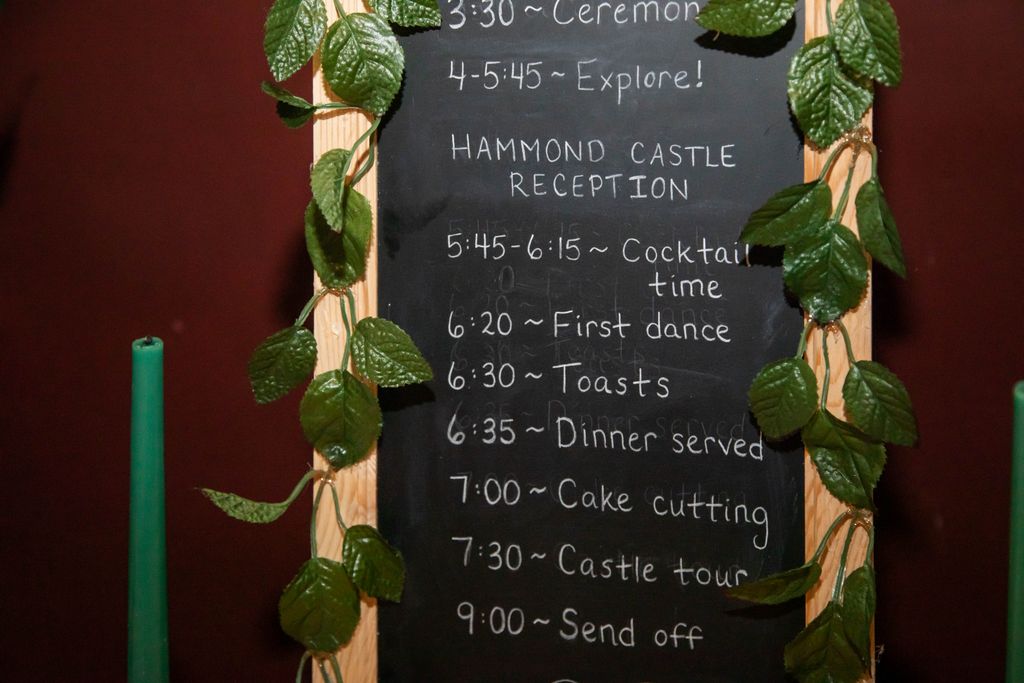 3:30 ~ Ceremon
4-5:45 ~ Explore!
HAMMOND CASTLE
RECEPTION
5:45-6:15 ~ Cocktail
time
6:20 ~ First dance
6:30 ~ Toasts
6:35 ~ Dinner served
7:00 ~ Cake cutting
7:30 ~ Castle tour
9:00 ~ Send off